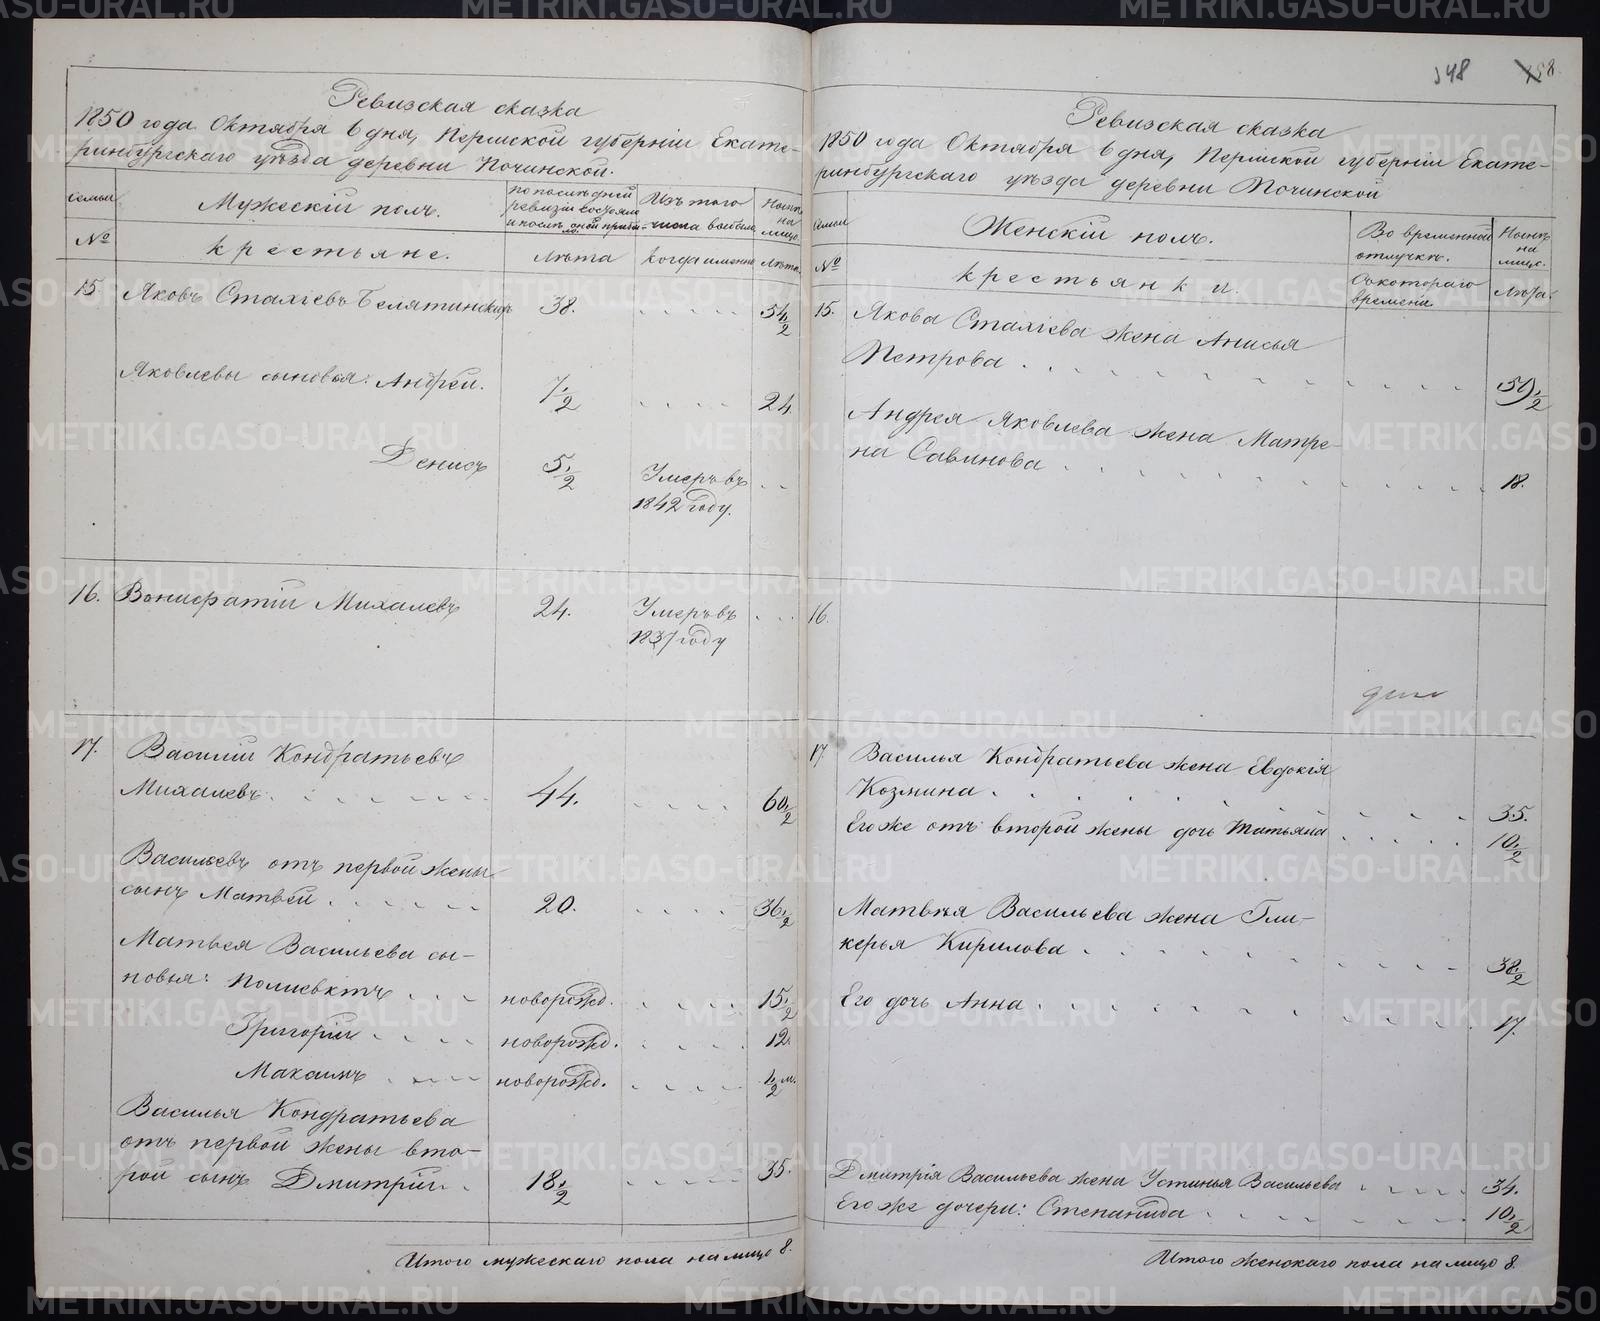 348 158.
Ревизская сказка
1850 года Октября 6 дня, Пермской губерніи Екате-
ринбургскаго уѣзда деревни Починской.
семьи
№
Мужескій полъ.
крестьяне.
По послѣдней
ревизіи состояло
и послѣ оной прибы-
Лѣта
Изъ того
числа выбыло
Когда именно
Нынѣ
на
лицо.
Лѣта.
15 Яковъ Сталіевъ Белятинскихъ 38. 54 1/2
Яковлевы сыновья: Андрей. 7 1/2 24.
Денисъ 5 1/2 Умеръ въ
1842 году.
16. Вонифатій Михалевъ 24. Умеръ въ
1837 году
17. Василій Кондратьевъ
Михалевъ. 44. 60 1/2
Васильевъ отъ первой жены
сынъ Матвей 20. 36 1/2
Матвея Васильева сы-
новья: Полиевктъ новорожд. 15 1/2
Григорій новорожд. 12.
Максимъ новорожд. 1/2 м.
Василья Кондратьева
отъ первой жены вто-
рой сынъ Дмитрій. 18 1/2 35.
Итого мужескаго пола на лицо 8.
Ревизская сказка
1850 года Октября 6 дня, Пермской губерніи Екате-
ринбургскаго уѣзда деревни Починской
Семьи
№
Женскій полъ.
крестьянки.
Во временной
отлучкѣ.
Съ котораго
времени
Нынѣ
на
лицо.
Лѣта.
15. Якова Сталіева жена Анисья
Петрова 50 1/2
Андрея Яковлева жена Матре-
на Савинова 18.
16.
17. Василья Кондратьева жена Евдокія
Козмина 35.
Его же отъ второй жены дочь Татьяна 10 1/2
Матвѣя Васильева жена Гли-
керья Кирилова 38 1/2
Его дочь Анна 17.
Дмитрія Васильева жена Устинья Васильева 34.
Его же дочери: Степанида 10 1/2
Итого женскаго пола на лицо 8.
METRIKI.GASO-URAL.RU